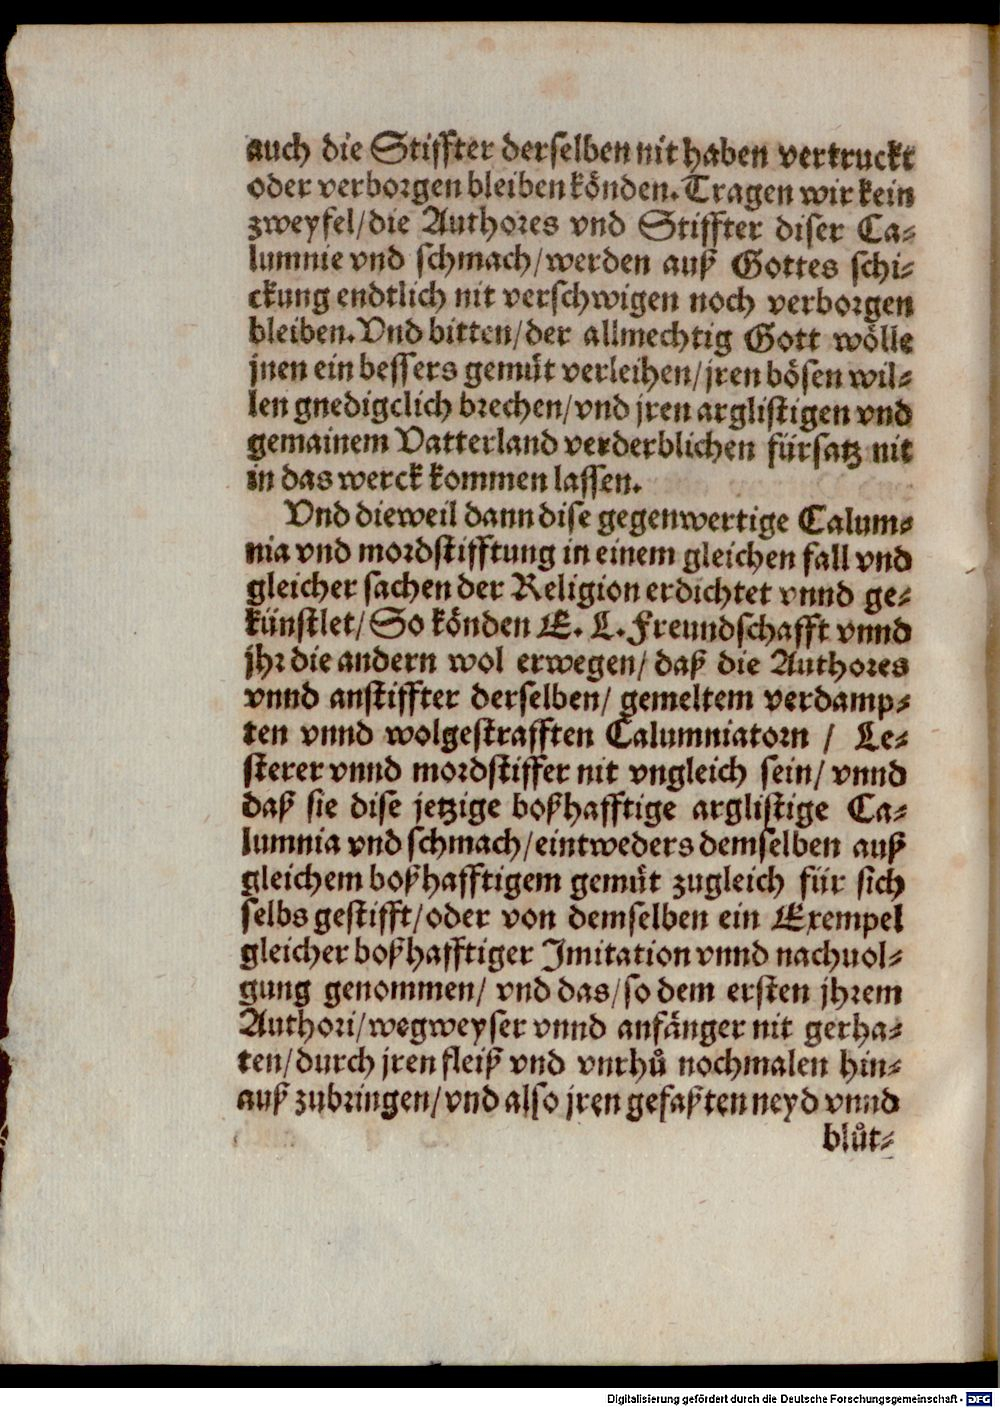 auch die Stiffter derselben nit haben vertruckt
oder verborgen bleiben könden. Tragen wir kein
zweyfel/die Authores vnd Stiffter diser Ca⸗
lumnie vnd schmach/werden auß Gottes schi⸗
ckung endtlich nit verschwigen noch verborgen
bleiben. Vnd bitten/der allmechtig Gott wölle
jnen ein bessers gemüt verleihen/jren bösen wil⸗
len gnedigclich brechen/vnd jren arglistigen vnd
gemainem Vatterland verderblichen fürsatz nit
in das werck kommen lassen.
Vnd dieweil dann dise gegenwertige Calum⸗
nia vnd mordstifftung in einem gleichen fall vnd
gleicher sachen der Religion erdichtet vnnd ge⸗
künstlet/ So könden E. L. Freundschafft vnnd
jhr die andern wol erwegen/ daß die Authores
vnnd anstiffter derselben/ gemeltem verdamp⸗
ten vnnd wolgestrafften Calumniatorn / Le⸗
sterer vnnd mordstiffer nit vngleich sein/ vnnd
daß sie dise jetzige boßhafftige arglistige Ca⸗
lumnia vnd schmach/eintweders demselben auß
gleichem boßhafftigem gemüt zugleich für sich
selbs gestifft/oder von demselben ein Exempel
gleicher boßhafftiger Imitation vnnd nachuol⸗
gung genommen/ vnd das/so dem ersten jhrem
Authori/wegweyser vnnd anfänger nit gerha⸗
ten/durch jren fleiß vnd vnrhů nochmalen hin⸗
auß zubringen/vnd also jren gefaßten neyd vnnd
blůt⸗
Digitalisierung gefördert durch die Deutsche Forschungsgemeinschaft - DFG